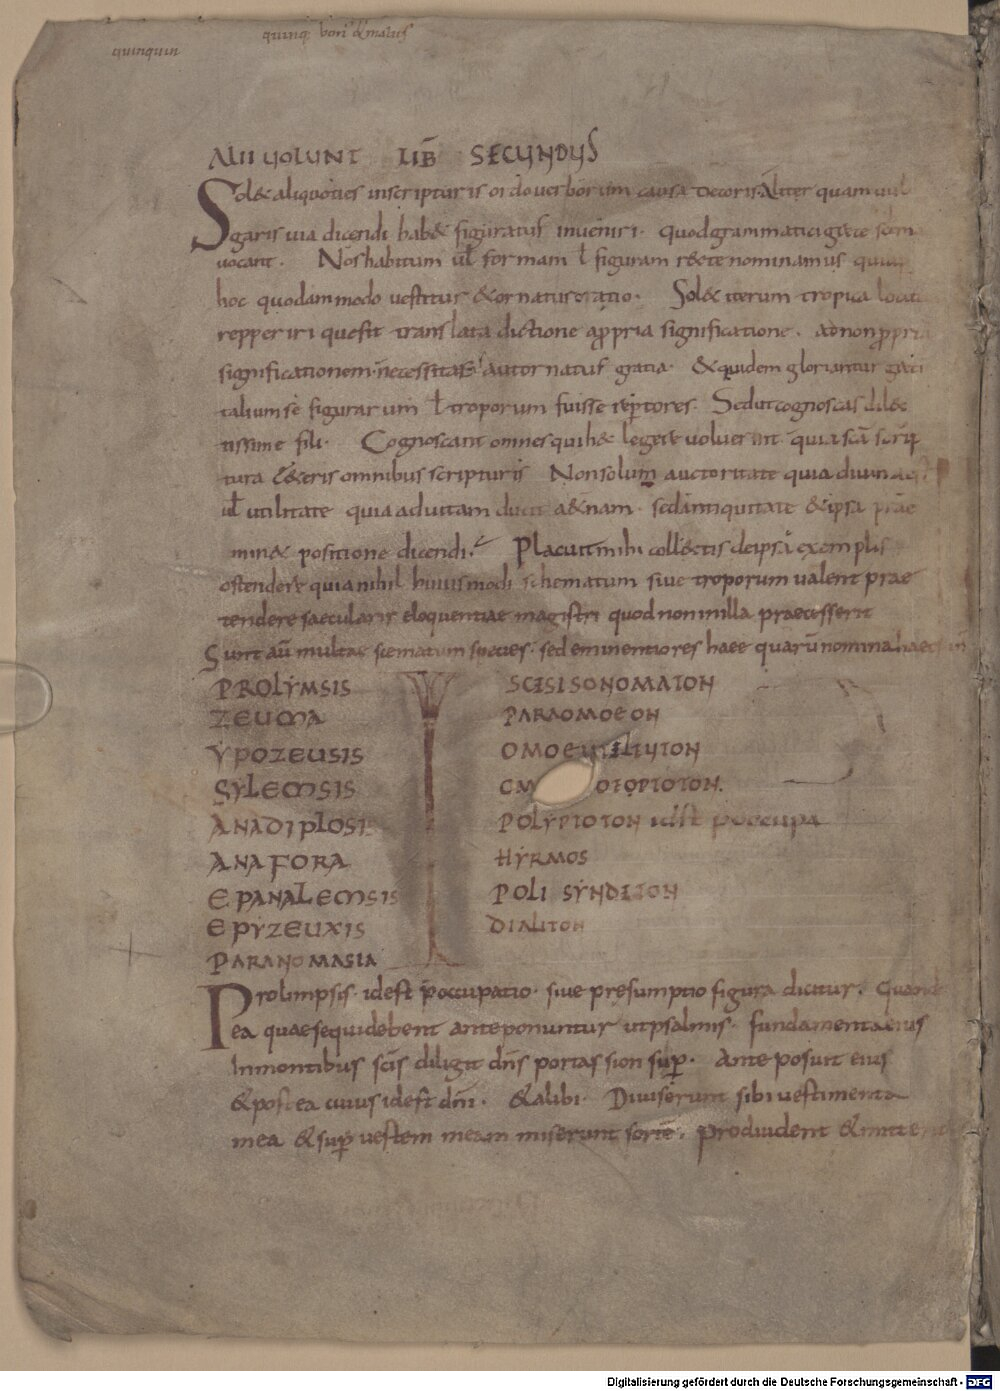 quinq; boni & malus
quinquin
ALII UOLUNT LIB̄ SECUNDUS
Sol& aliquoties inscripturis ordo uerborum causa decoris Aliter quam uul
garis uia dicendi hab& figuratus inueniri. quod grammatici grece scem
uocant. Nos habitum ul̄ formam l̄ figuram r&te nominamus quia
hoc quodammodo uestitur & ornatur oratio. Sol& iterum tropica locu
repperiri que fit translata dictione a ꝓpria significatione. ad non ꝓpriā
significationem necessitatis aut ornatus gratia. & quidem gloriantur greci
talium se figurarum l̄ troporum fuisse rep̄tores. Sed ut cognoscas dilec
tissime fili. Cognoscant omnes qui hec legere uoluerint quia scā scrip
tura c&eris omnibus scripturis Non solum auctoritate quia diuina est
ul̄ utilitate quia ad uitam ducit a&nam. sed antiquitate & ipsa prae
min& positione dicendi. Placuit mihi collectis de ipsa exemplis
ostendere quia nihil huiusmodi schematum siue troporum ualent prae
tendere saecularis eloquentiae magistri quod non in illa praecesserit
Sunt aū multae scematum species. sed eminentiores haee quarū nomina haec
PROLYMSIS
ZEUMA
YPOZEUSIS
SYLEMSIS
ANADIPLOSI
ANAFORA
EPANALEMSIS
EPYZEUXIS
PARANOMASIA
SCISISONOMATON
PARAOMOEON
OMOEUTELIUTON
OM OTOPTOTON.
POLYPTOTON idest p̄occupa
HYRMOS
POLI SYNDITON
DIALITON
Prolimpsis. idest p̄occupatio. siue presumptio figura dicitur. Quando
ea quae sequi debent anteponuntur ut psalmis. fundamenta eius
In montibus scīs diligit dn̄s portas sion suꝑ. Ante posuit eius
& postea cuius idest dn̄i. & alibi. Diuiserunt sibi uestimenta
mea & suꝑ uestem meam miserunt sortē. pro diuident & mittent
Digitalisierung gefördert durch die Deutsche Forschungsgemeinschaft - DFG